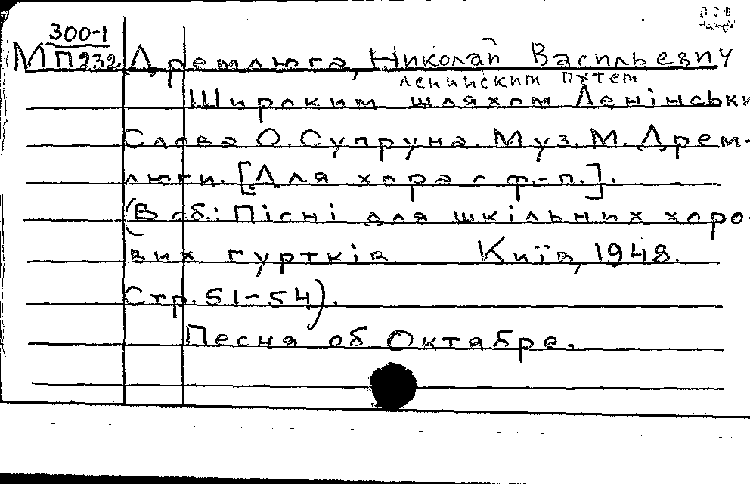 300-1
МП232 Дремлюга, Николай Васильевич
Ленинским путем
Широким шляхом Ленінськи
Слова О. Супруна. Муз. М. Дрем-
люги. [Для хора с ф.-п.].
(В сб: Пісні для шкільних хоро-
вих гуртків Київ, 1948.
Стр. 51-54).
Песня об Октябре.